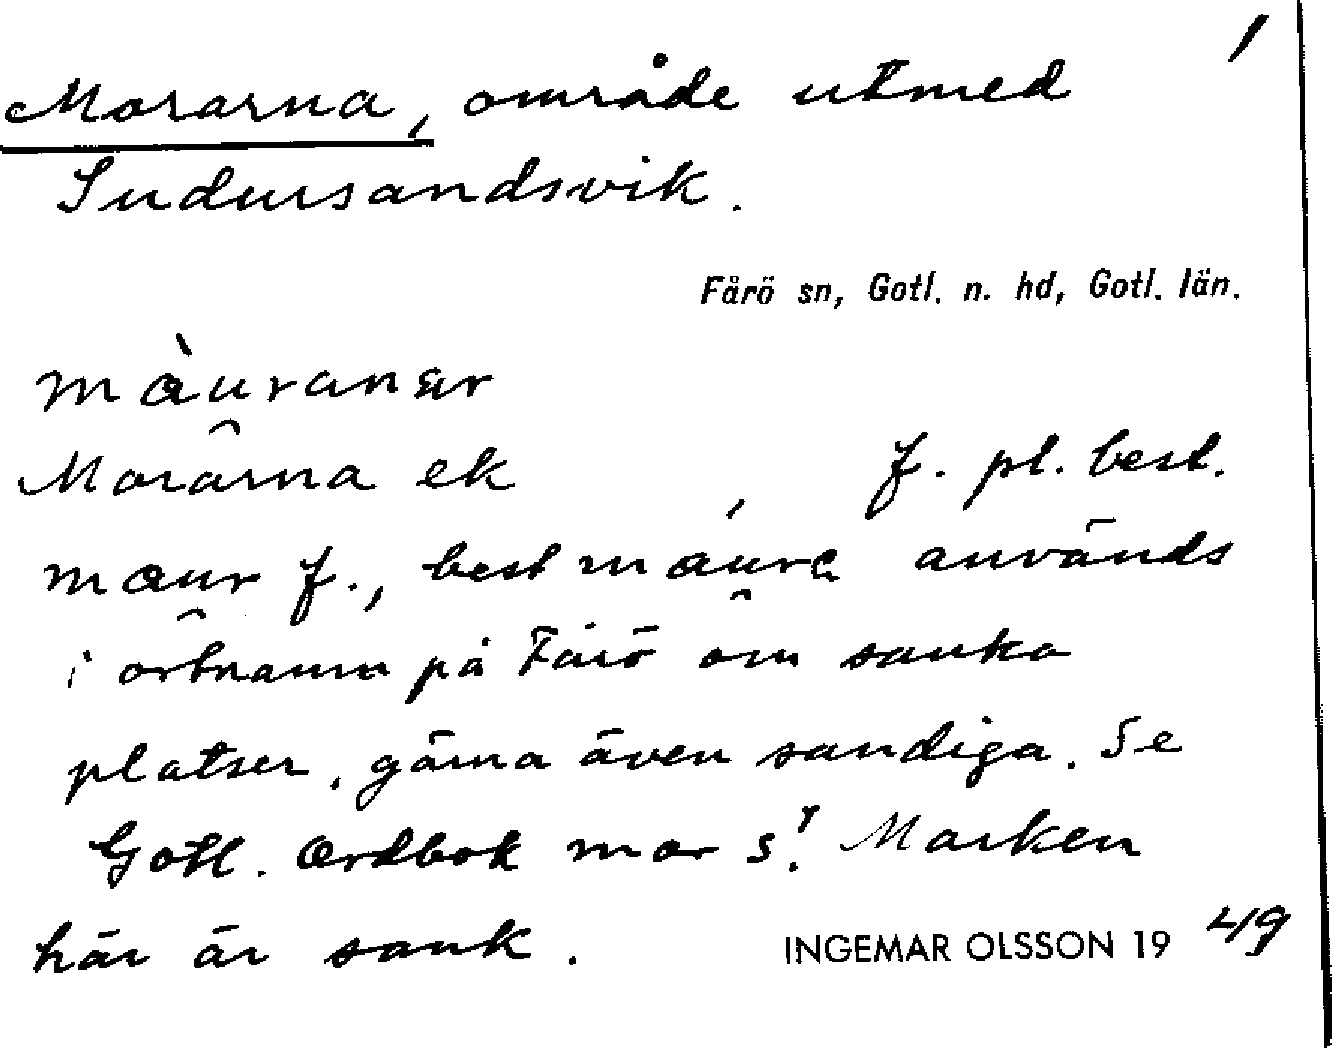 1
Morarna, område utmed
Sudursandsvik.
Fårö sn, Gotl. n. hd, Gotl. län.
màuranar
Morarna ek , f. pl. best.
maur f., best maura används
i ortnamn på Fårö om sanka
platser, gärna även sandiga. Se
Gotl. Ordbok mor s. Marken
här är sank.
INGEMAR OLSSON 19 49